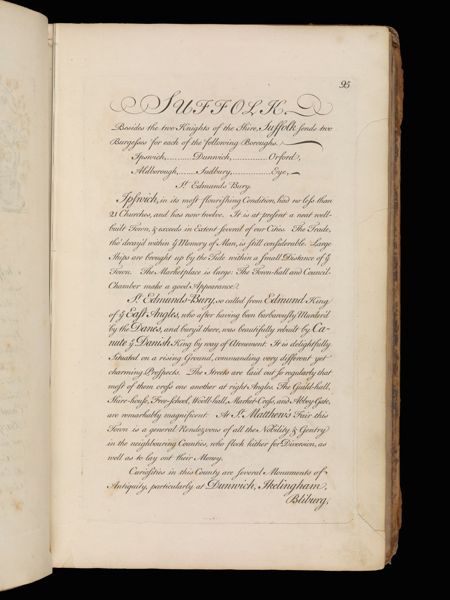 95
SUFFOLK.
Besides the two Knights of the Shire, Suffolk sends two
Burgesses for each of the following Boroughs.
Ipswich, Dunwich, Orford,
Aldborough, Sudbury, Eye,
St. Edmunds Bury.
Ipswich, in its most flourishing Condition, had no less than
21 Churches, and has now twelve. It is at present a neat well-
built Town, & exceeds in Extent several of our Cities. The Trade,
tho' decay'd within ye Memory of Man, is still considerable. Large
Ships are brought up by the Tide within a small Distance of ye
Town. The Marketplace is large. The Town-hall and Council-
Chamber make a good Appearance.
St. Edmunds-Bury, so called from Edmund King
of ye East-Angles, who after having been barbarously Murder'd
by the Danes, and bury'd there, was beautifully rebuilt by Ca-
nute ye Danish King by way of Atonement. It is delightfully
Situated on a rising Ground, commanding very different yet
charming Prospects. The Streets are laid out so regularly that
most of them cross one another at right Angles. The Guild-hall,
Shire-house, Free-School, Wooll-hall, Market-Cross, and Abbey-Gate,
are remarkably magnificent. At St. Matthew's Fair this
Town is a general Rendezvous of all the Nobility & Gentry
in the neighbouring Counties, who flock hither for Diversion, as
well as to lay out their Money.
Curiosities in this County are several Monuments of
Antiquity, particularly at Dunwich, Ikelingham,
Bliburg,